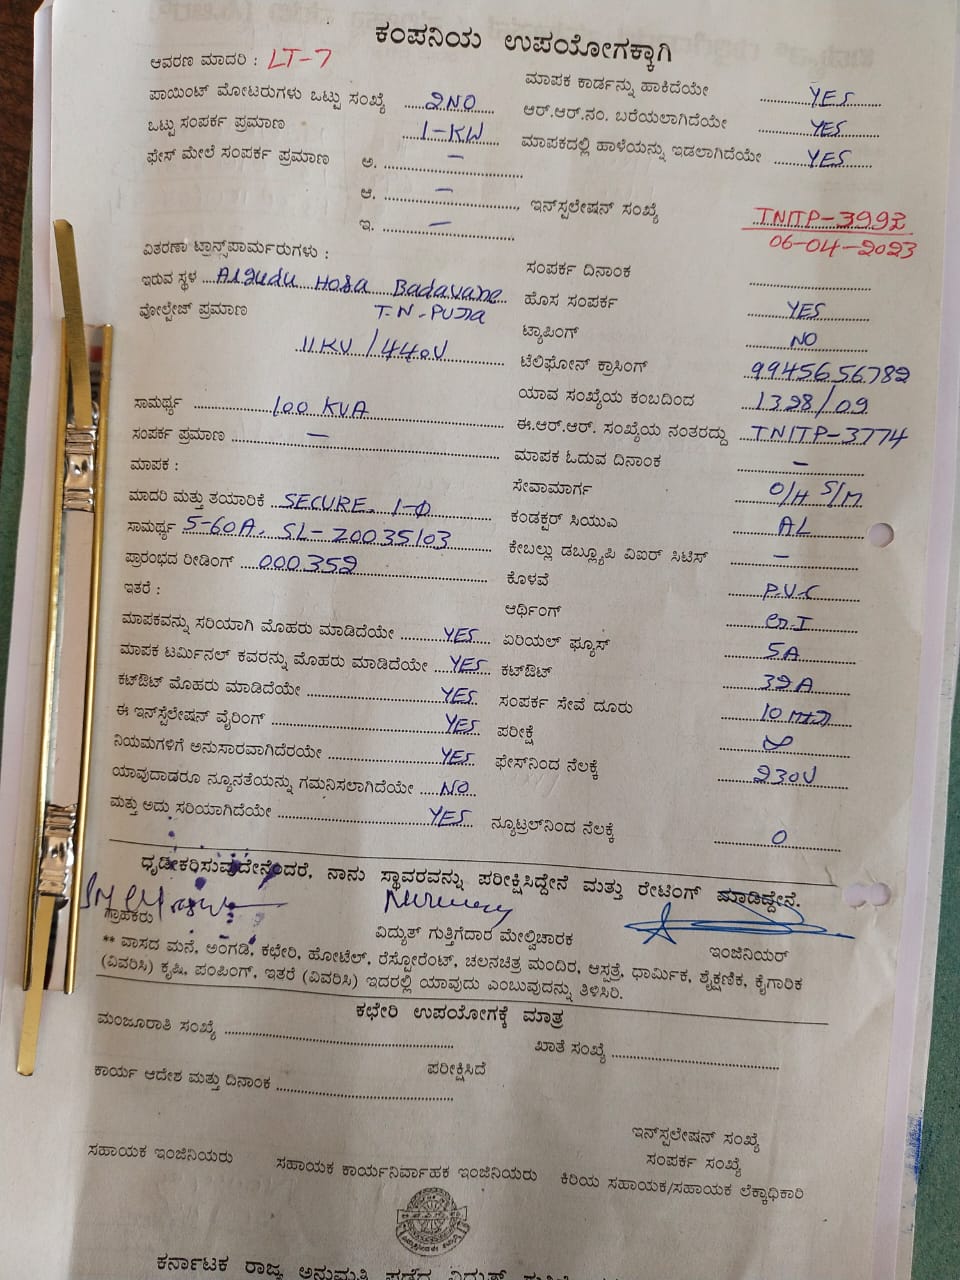 ಕಂಪನಿಯ ಉಪಯೋಗಕ್ಕಾಗಿ
ಆವರಣ ಮಾದರಿ : LT-7
ಮಾಪಕ ಕಾರ್ಡನ್ನು ಹಾಕಿದೆಯೇ YES
ಪಾಯಿಂಟ್ ಮೋಟರುಗಳು ಒಟ್ಟು ಸಂಖ್ಯೆ 2NO
ಆರ್.ಆರ್.ನಂ. ಬರೆಯಲಾಗಿದೆಯೇ YES
ಒಟ್ಟು ಸಂಪರ್ಕ ಪ್ರಮಾಣ 1-KW
ಮಾಪಕದಲ್ಲಿ ಹಾಳೆಯನ್ನು ಇಡಲಾಗಿದೆಯೇ YES
ಫೇಸ್ ಮೇಲೆ ಸಂಪರ್ಕ ಪ್ರಮಾಣ ಅ. –
ಆ. –
ಇನ್‌ಸ್ಪಲೇಷನ್ ಸಂಖ್ಯೆ TNITP-3992
06-04-2023
ಇ. –
ವಿತರಣಾ ಟ್ರಾನ್ಸ್‌ಪಾರ್ಮರುಗಳು :
ಸಂಪರ್ಕ ದಿನಾಂಕ
ಇರುವ ಸ್ಥಳ Aragudu Hosa Badavane
T.N-Pura
ಹೊಸ ಸಂಪರ್ಕ YES
ವೋಲ್ಟೇಜ್ ಪ್ರಮಾಣ
11KV/440V
ಟ್ಯಾಪಿಂಗ್ NO
ಟೆಲಿಫೋನ್ ಕ್ರಾಸಿಂಗ್ 9945656782
ಸಾಮರ್ಥ್ಯ 100 KVA
ಯಾವ ಸಂಖ್ಯೆಯ ಕಂಬದಿಂದ 1328/09
ಸಂಪರ್ಕ ಪ್ರಮಾಣ –
ಈ.ಆರ್.ಆರ್. ಸಂಖ್ಯೆಯ ನಂತರದ್ದು TNITP-3774
ಮಾಪಕ :
ಮಾಪಕ ಓದುವ ದಿನಾಂಕ –
ಮಾದರಿ ಮತ್ತು ತಯಾರಿಕೆ SECURE. 1-Φ
ಸೇವಾಮಾರ್ಗ O/H S/M
ಸಾಮರ್ಥ್ಯ 5-60A. SL-20035103
ಕಂಡಕ್ಟರ್ ಸಿಯುಎ AL
ಪ್ರಾರಂಭದ ರೀಡಿಂಗ್ 000352
ಕೇಬಲ್ಲು ಡಬ್ಲ್ಯೂಪಿ ವಿಐರ್ ಸಿಟಿಸ್ –
ಇತರೆ :
ಕೊಳವೆ P.V.C
ಆರ್ಥಿಂಗ್ G.I
ಮಾಪಕವನ್ನು ಸರಿಯಾಗಿ ಮೊಹರು ಮಾಡಿದೆಯೇ YES
ಏರಿಯಲ್ ಫ್ಯೂಸ್ 5A
ಮಾಪಕ ಟರ್ಮಿನಲ್ ಕವರನ್ನು ಮೊಹರು ಮಾಡಿದೆಯೇ YES
ಕಟ್‌ಔಟ್ 32A
ಕಟ್‌ಔಟ್ ಮೊಹರು ಮಾಡಿದೆಯೇ YES
ಸಂಪರ್ಕ ಸೇವೆ ದೂರು 10 Mtr
ಈ ಇನ್‌ಸ್ಟಲೇಷನ್ ವೈರಿಂಗ್ YES
ಪರೀಕ್ಷೆ ∞
ನಿಯಮಗಳಿಗೆ ಅನುಸಾರವಾಗಿದೆರಯೇ YES
ಫೇಸ್‌ನಿಂದ ನೆಲಕ್ಕೆ 230V
ಯಾವುದಾಡರೂ ನ್ಯೂನತೆಯನ್ನು ಗಮನಿಸಲಾಗಿದೆಯೇ NO
ಮತ್ತು ಅದು ಸರಿಯಾಗಿದೆಯೇ YES
ನ್ಯೂಟ್ರಲ್‌ನಿಂದ ನೆಲಕ್ಕೆ 0
ಧೃಡೀಕರಿಸುವುದೇನೆಂದರೆ, ನಾನು ಸ್ಥಾವರವನ್ನು ಪರೀಕ್ಷಿಸಿದ್ದೇನೆ ಮತ್ತು ರೇಟಿಂಗ್ ಮಾಡಿದ್ದೇನೆ.
ಗ್ರಾಹಕರು
ವಿದ್ಯುತ್ ಗುತ್ತಿಗೆದಾರ ಮೇಲ್ವಿಚಾರಕ
ಇಂಜಿನಿಯರ್
** ವಾಸದ ಮನೆ, ಅಂಗಡಿ, ಕಛೇರಿ, ಹೋಟೆಲ್, ರೆಸ್ಟೋರೆಂಟ್, ಚಲನಚಿತ್ರ ಮಂದಿರ, ಆಸ್ಪತ್ರೆ, ಧಾರ್ಮಿಕ, ಶೈಕ್ಷಣಿಕ, ಕೈಗಾರಿಕ
(ವಿವರಿಸಿ) ಕೃಷಿ, ಪಂಪಿಂಗ್, ಇತರೆ (ವಿವರಿಸಿ) ಇದರಲ್ಲಿ ಯಾವುದು ಎಂಬುವುದನ್ನು ತಿಳಿಸಿರಿ.
ಕಛೇರಿ ಉಪಯೋಗಕ್ಕೆ ಮಾತ್ರ
ಮಂಜೂರಾತಿ ಸಂಖ್ಯೆ
ಖಾತೆ ಸಂಖ್ಯೆ
ಪರೀಕ್ಷಿಸಿದೆ
ಕಾರ್ಯ ಆದೇಶ ಮತ್ತು ದಿನಾಂಕ
ಇನ್‌ಸ್ಪಲೇಷನ್ ಸಂಖ್ಯೆ
ಸಂಪರ್ಕ ಸಂಖ್ಯೆ
ಸಹಾಯಕ ಇಂಜಿನಿಯರು ಸಹಾಯಕ ಕಾರ್ಯನಿರ್ವಾಹಕ ಇಂಜಿನಿಯರು ಕಿರಿಯ ಸಹಾಯಕ/ಸಹಾಯಕ ಲೆಕ್ಕಾಧಿಕಾರಿ
ಕರ್ನಾಟಕ ರಾಜ್ಯ ಅನುಮತಿ ಪಡೆದ ವಿದ್ಯುತ್